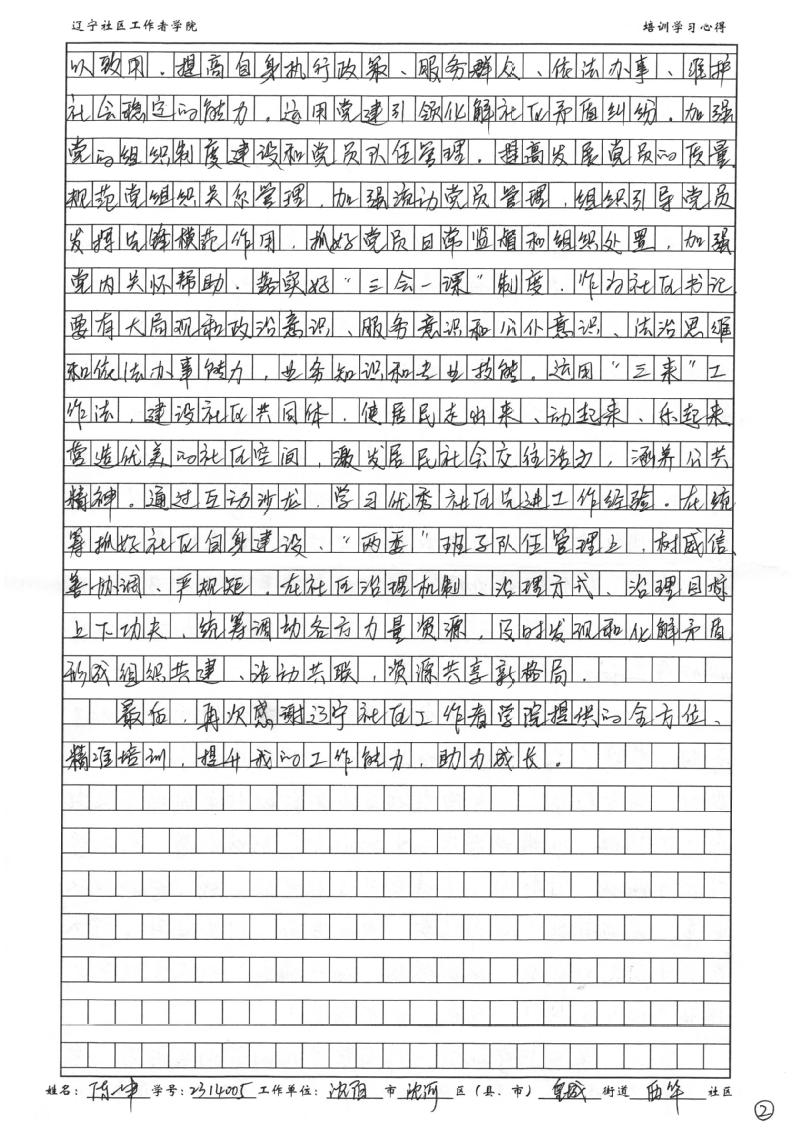 辽宁社区工作者学院 培训学习心得
以致用。提高自身执行政策、服务群众、依法办事、维护
社会稳定的能力。运用党建引领化解社区矛盾纠纷。加强
党的组织制度建设和党员队伍管理。提高发展党员的质量
规范党组织关系管理，加强流动党员管理，组织引导党员
发挥先锋模范作用，抓好党员日常监督和组织处置，加强
党内关怀帮助。落实好“三会一课”制度。作为社区书记
要有大局观和政治意识、服务意识和公仆意识、法治思维
和依法办事能力，业务知识和专业技能。运用“三来”工
作法，建设社区共同体，使居民走出来、动起来、乐起来
营造优美的社区空间，激发居民社会交往活力，涵养公共
精神。通过互动沙龙，学习优秀社区先进工作经验。在统
筹抓好社区自身建设、“两委”班子队伍管理上，树威信
善协调、严规矩。在社区治理机制、治理方式、治理目标
上下功夫，统筹调动各方力量资源，及时发现和化解矛盾
形成组织共建、活动共联，资源共享新格局。
最后，再次感谢辽宁社区工作者学院提供的全方位、
精准培训，提升我的工作能力，助力成长。
姓名：陈一坤 学号：2314005 工作单位：沈阳 市 沈河 区（县、市） 皇城 街道 社区
②